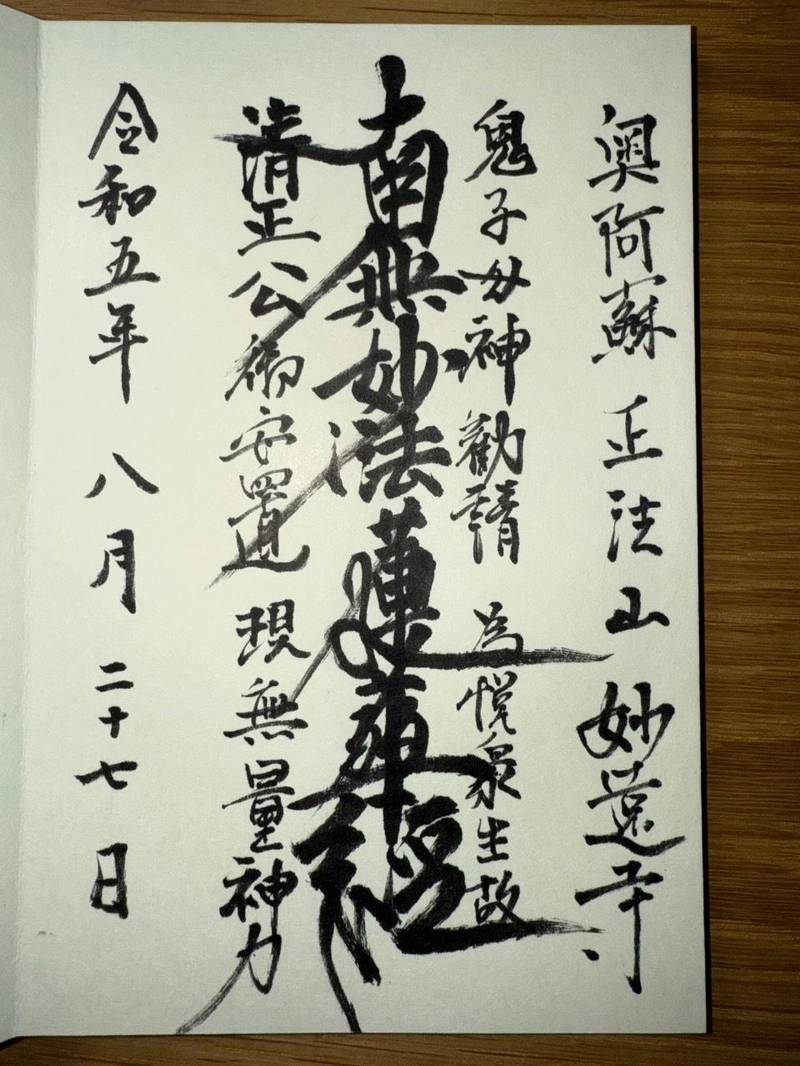 奥阿蘇 正法山 妙遠寺
鬼子母神勧請 為悦衆生故
南無妙法蓮華経
清正公御安置 現無量神力
令和五年 八月 二十七日